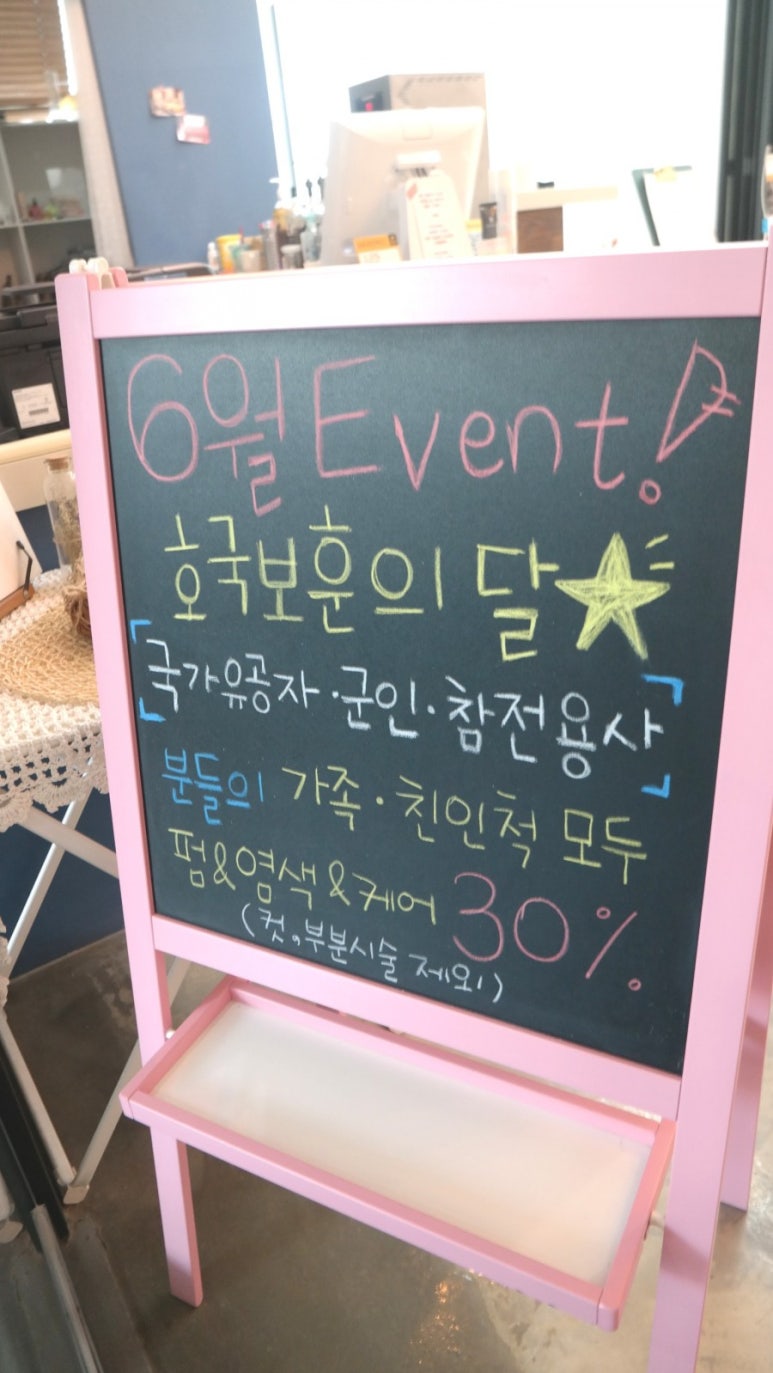 6월 Event!
호국보훈의 달
국가유공자·군인·참전용사
분들의 가족·친인척 모두
펌&염색&케어 30%
(컷, 부분시술 제외)